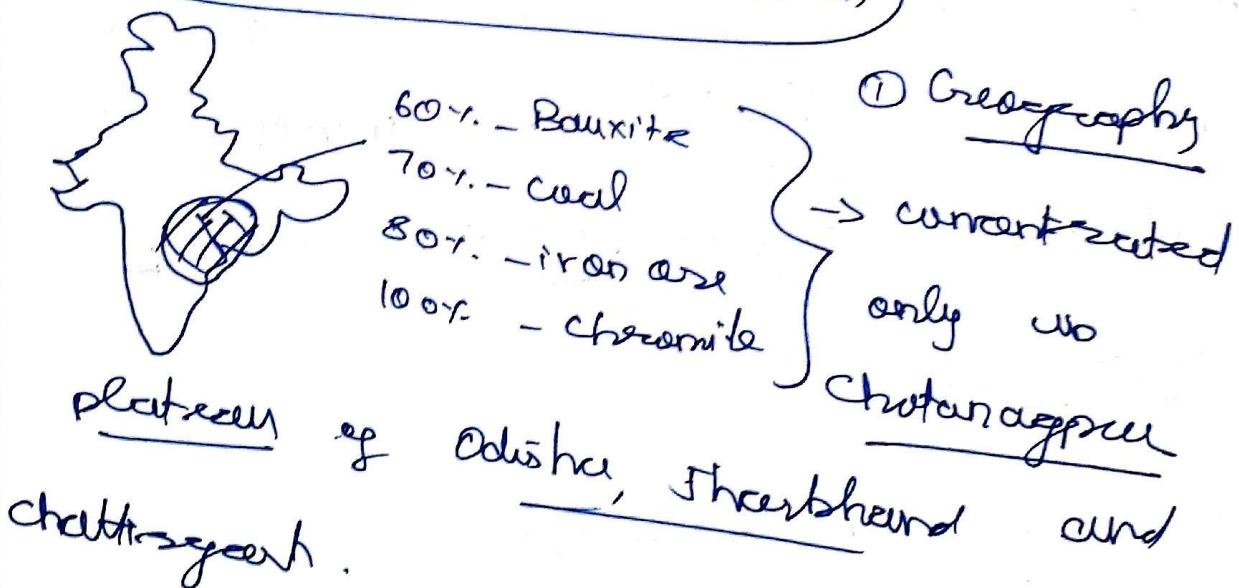 ① Geography
60% - Bauxite
70% - coal
80% - iron ore
100% - Chromite
→ concentrated
only in
Chotanagpur
plateau of Odisha, Jharkhand and
chattisgarh.